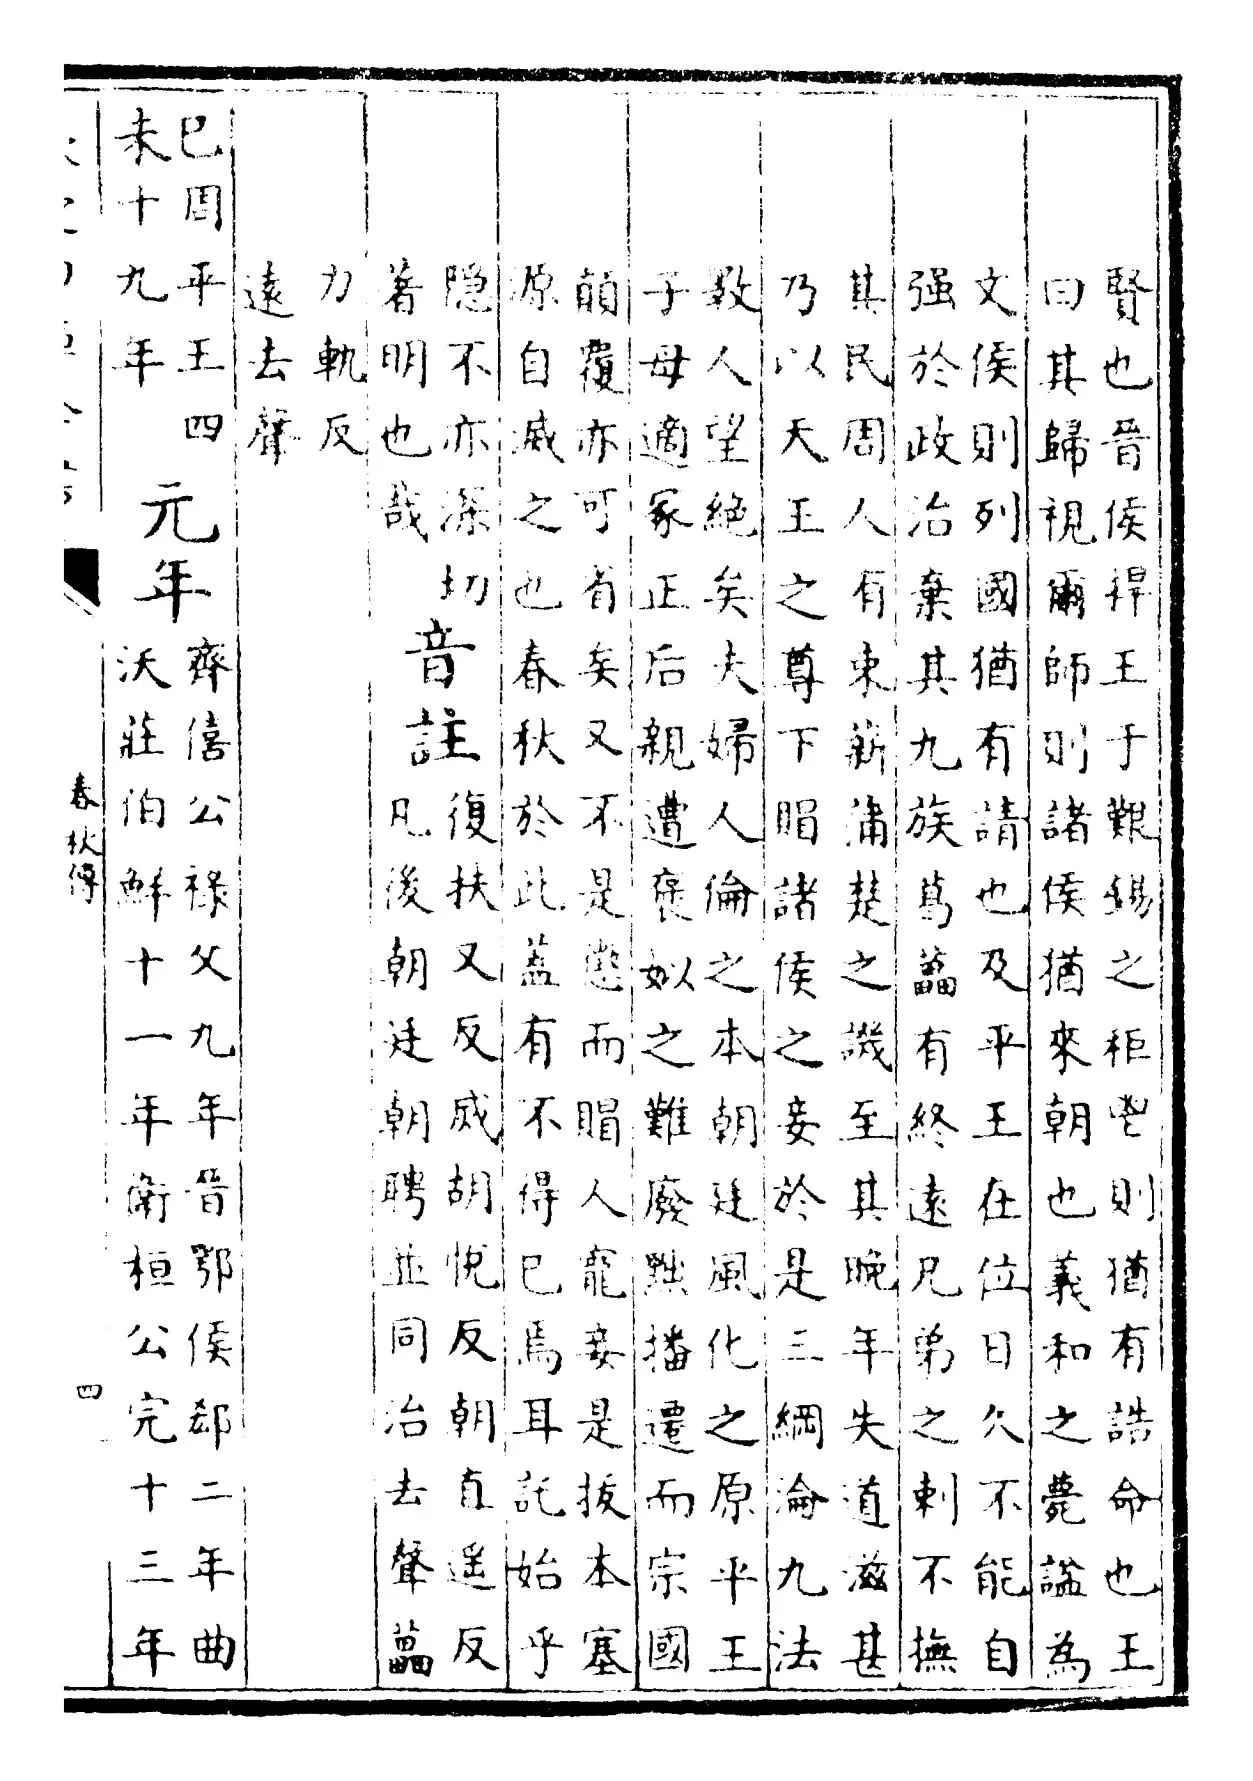 賢也晉侯捍王于艱錫之秬鬯則猶有誥命也王
曰其歸視爾師則諸侯猶來朝也義和之薨謚為
文侯則列國猶有請也及平王在位日久不能自
强於政治棄其九族葛藟有終遠兄弟之刺不撫
其民周人有束薪蒲楚之譏至其晩年失道滋甚
乃以天王之尊下賵諸侯之妾於是三綱淪九法
斁人望絕矣夫婦人倫之本朝廷風化之原平王
子母適冢正后親遭褒姒之難廢黜播遷而宗國
顛覆亦可省矣又不是懲而賵人寵妾是拔本塞
源自滅之也春秋於此蓋有不得已焉耳託始乎
隠不亦深切
著明也哉
音註
復扶又反滅胡悅反朝直遥反
凡後朝廷朝聘並同治去聲藟
力軌反
遠去聲
己周平王四
未十九年
元年
齊僖公祿父九年晉鄂侯郄二年曲
沃莊伯鮮十一年衛桓公完十三年
春秋傳
四